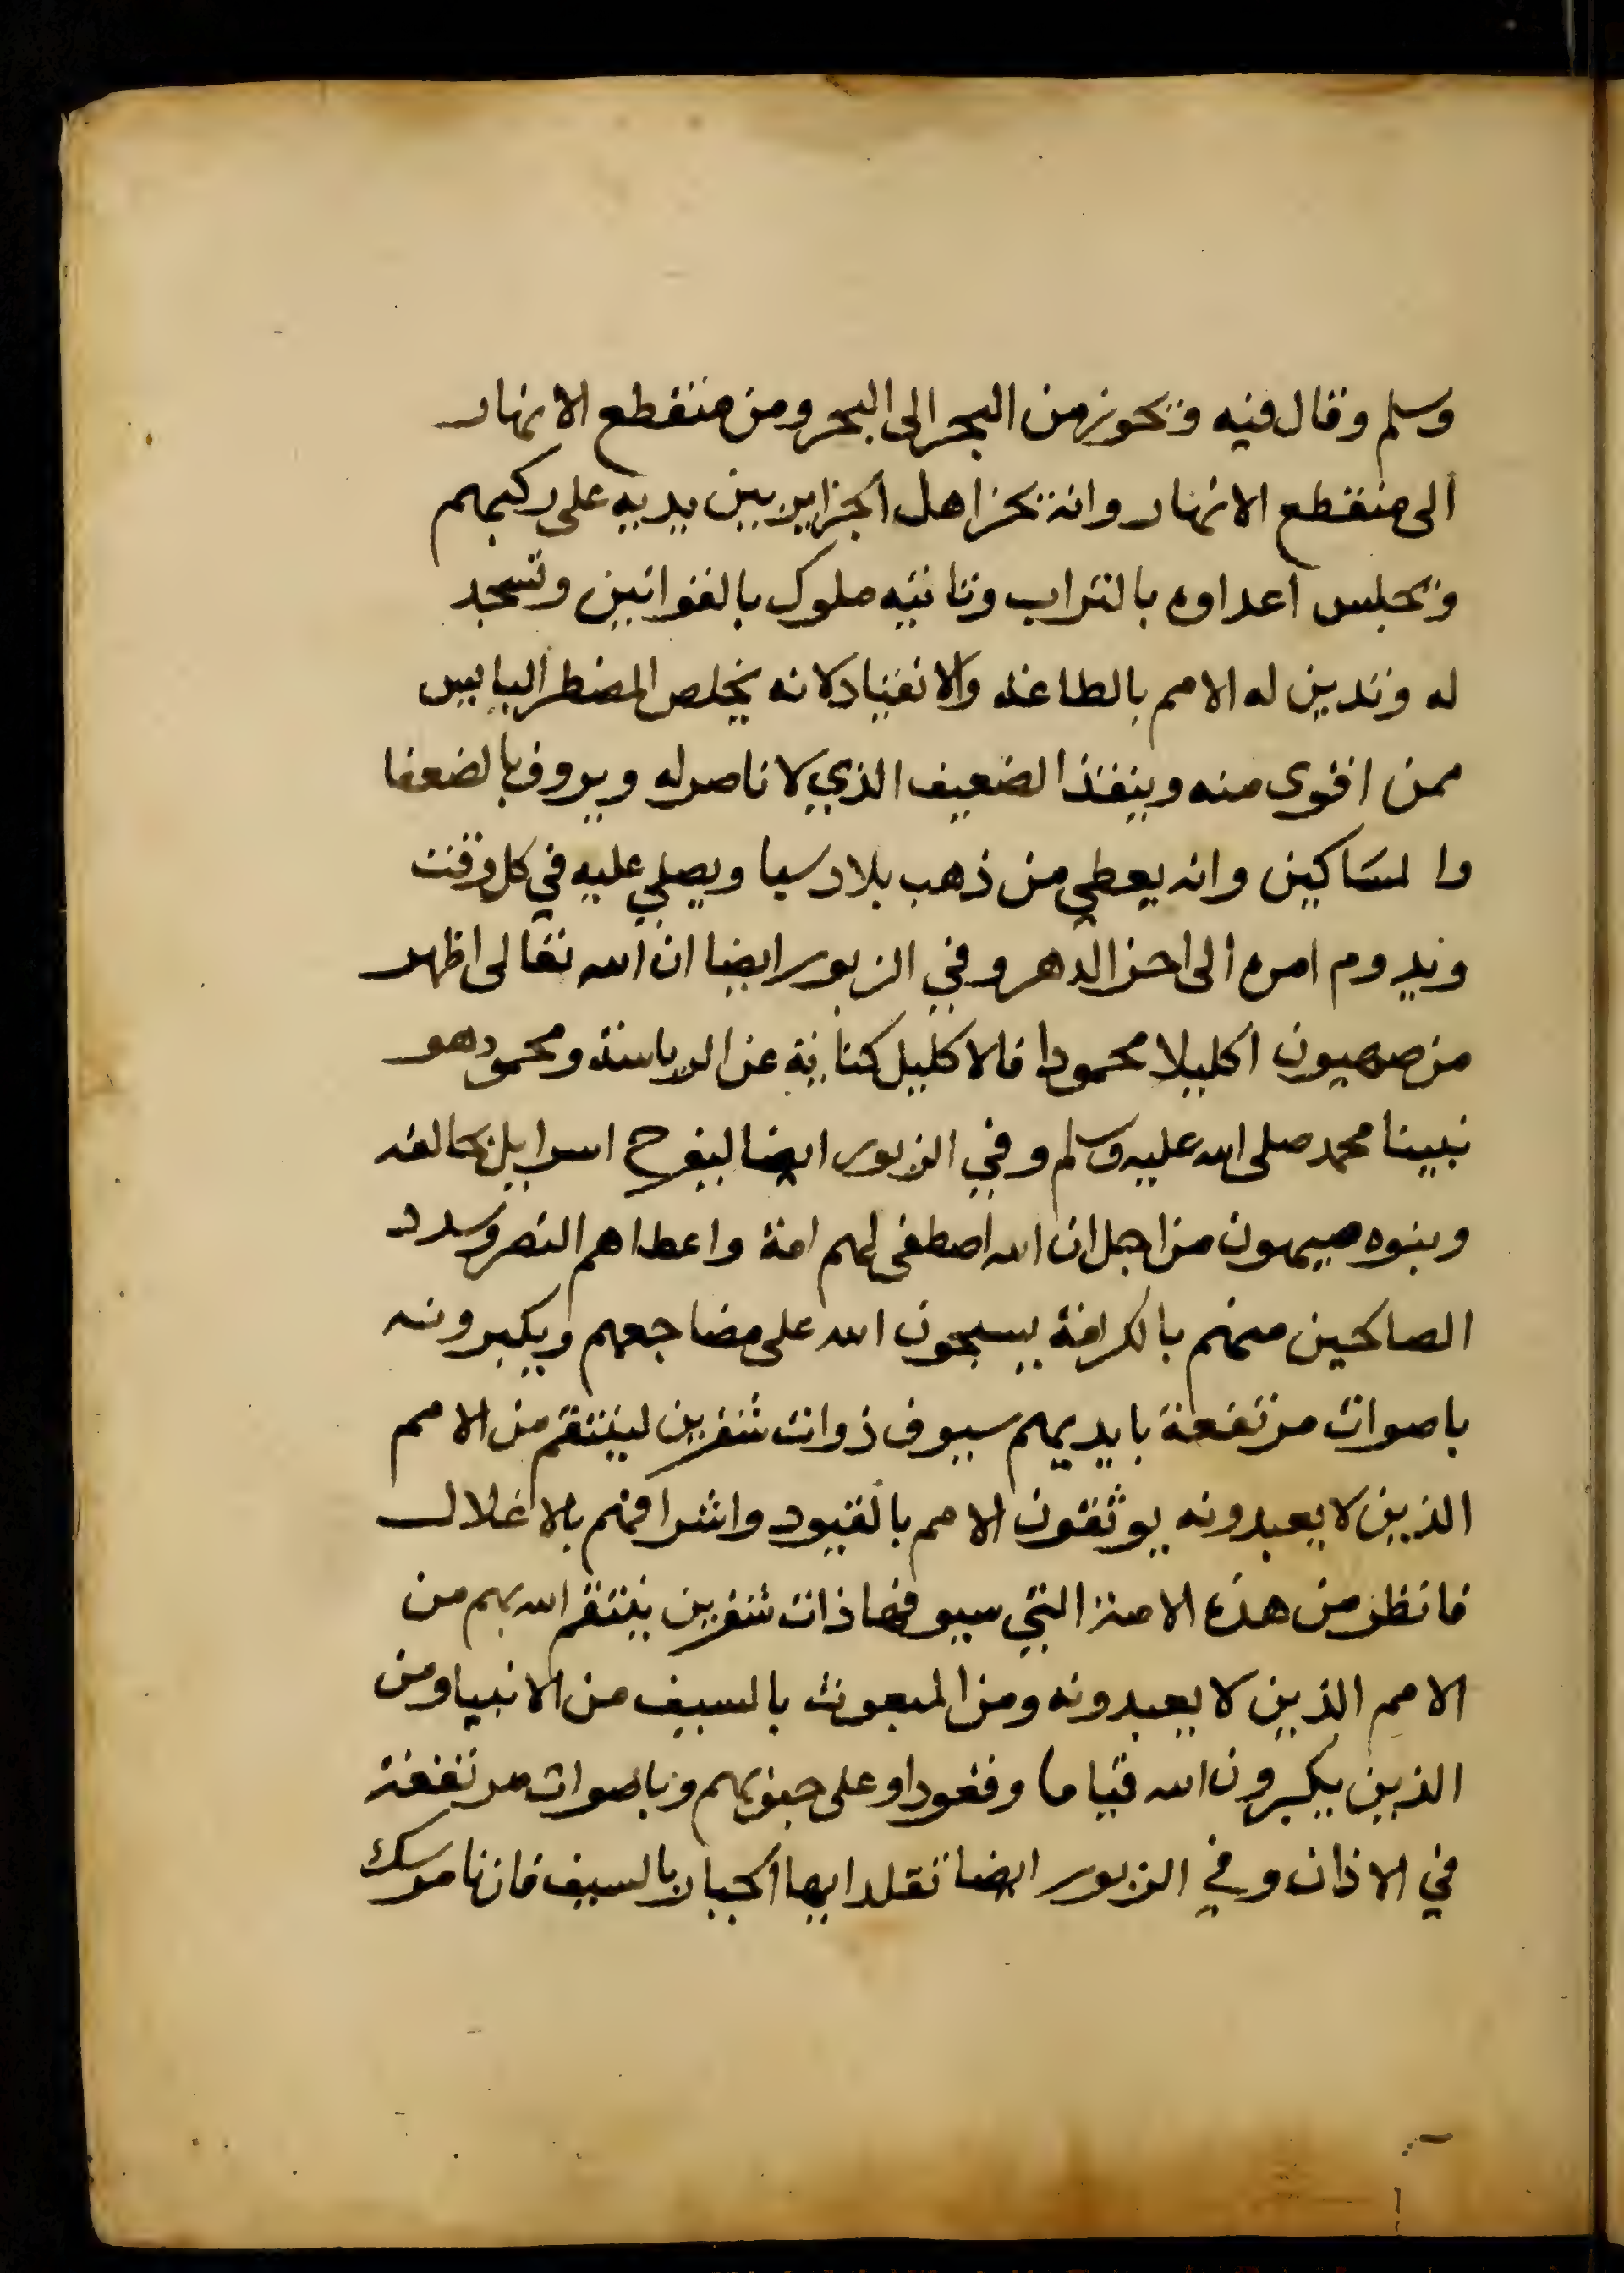 وسلم وقال فيه ويحوز من البحر الى البحر ومن منقطع الانهار
الى منقطع الانهار وانه تخر اهل الجزاير بين يديه على ركبهم
وتجلس اعداوه بالتراب وتاتيه ملوك بالقوانين وتسجد
له وتدين له الامم بالطاعة والانقياد لانه يخلص المضطر البايس
ممن اقوى منه وينقذ الضعيف الذي لا ناصر له ويروف بالضعفا
والمساكين وانه يعطي من ذهب بلاد سبا ويصلي عليه في كل وقت
ويدوم امره الى اخر الدهر وفي الزبور ايضا ان الله تعالى اظهر
من صهيون اكليلا محمودا فالاكليل كناية عن الرياسة ومحمود هو
نبينا محمد صلى الله عليه وسلم وفي الزبور ايضا ليفرح اسرايل بخالقه
وبنوه صيهون من اجل ان الله اصطفى لهم امة واعطاهم النصر وسدد
الصالحين منهم بالكرامة يسبحون الله على مضاجعهم ويكبرونه
باصوات مرتفعة بايديهم سيوف ذوات شفرين لينتقم من الامم
الذين لا يعبدونه يوثقون الامم بالقيود واشرافهم بالاغلال
فانظر من هذه الامة التي سيوفها ذات شفرين ينتقم الله بهم من
الامم الذين لا يعبدونه ومن المبعوث بالسيف من الانبيا ومن
الذين يكبرون الله قياما وقعودا وعلى جنوبهم وباصوات مرتفعة
في الاذان وفي الزبور ايضا تقلد ايها الجبار بالسيف فان ناموسك